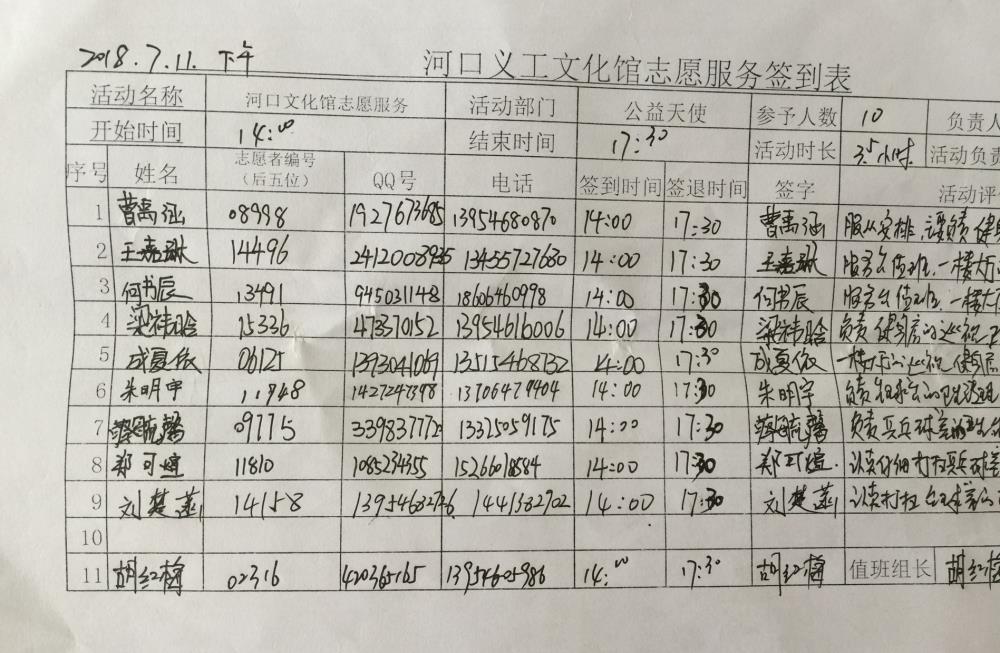 2018.7.11. 下午 河口义工文化馆志愿服务签到表
活动名称 河口文化馆志愿服务 活动部门 公益天使 参予人数 10 负责人
开始时间 14:00 结束时间 17:30 活动时长 3.5小时 活动负责
序号 姓名 志愿者编号（后五位） QQ号 电话 签到时间 签退时间 签字 活动评
1 曹禹涵 08998 1927673685 13954680870 14:00 17:30 曹禹涵 服从安排，认真负责
2 王嘉琳 14496 2412008935 13455727680 14:00 17:30 王嘉琳 服务台值班，一楼大厅
3 何书辰 13491 945031148 18606460998 14:00 17:30 何书辰 服务台值班，一楼大
4 梁祎晗 15336 473370152 13954616006 14:00 17:30 梁祎晗 负责健身房的巡视
5 成夏依 06125 1393041069 13515468732 14:00 17:30 成夏依 一楼大厅巡视
6 朱明宇 11948 1427247398 13706479404 14:00 17:30 朱明宇 负责
7 09775 339837772 13325059175 14:00 17:30 负责乒乓球室的卫生
8 郑可煊 11810 1085234355 15266018584 14:00 17:30 郑可煊. 认真仔细打扫乒乓球室
9 刘楚菡 14158 13954682726 1441382902 14:00 17:30 刘楚菡 认真打扫台球室的
10
11 胡红梅 02316 420365165 13954605986 14:00 17:30 胡红梅 值班组长 胡红梅